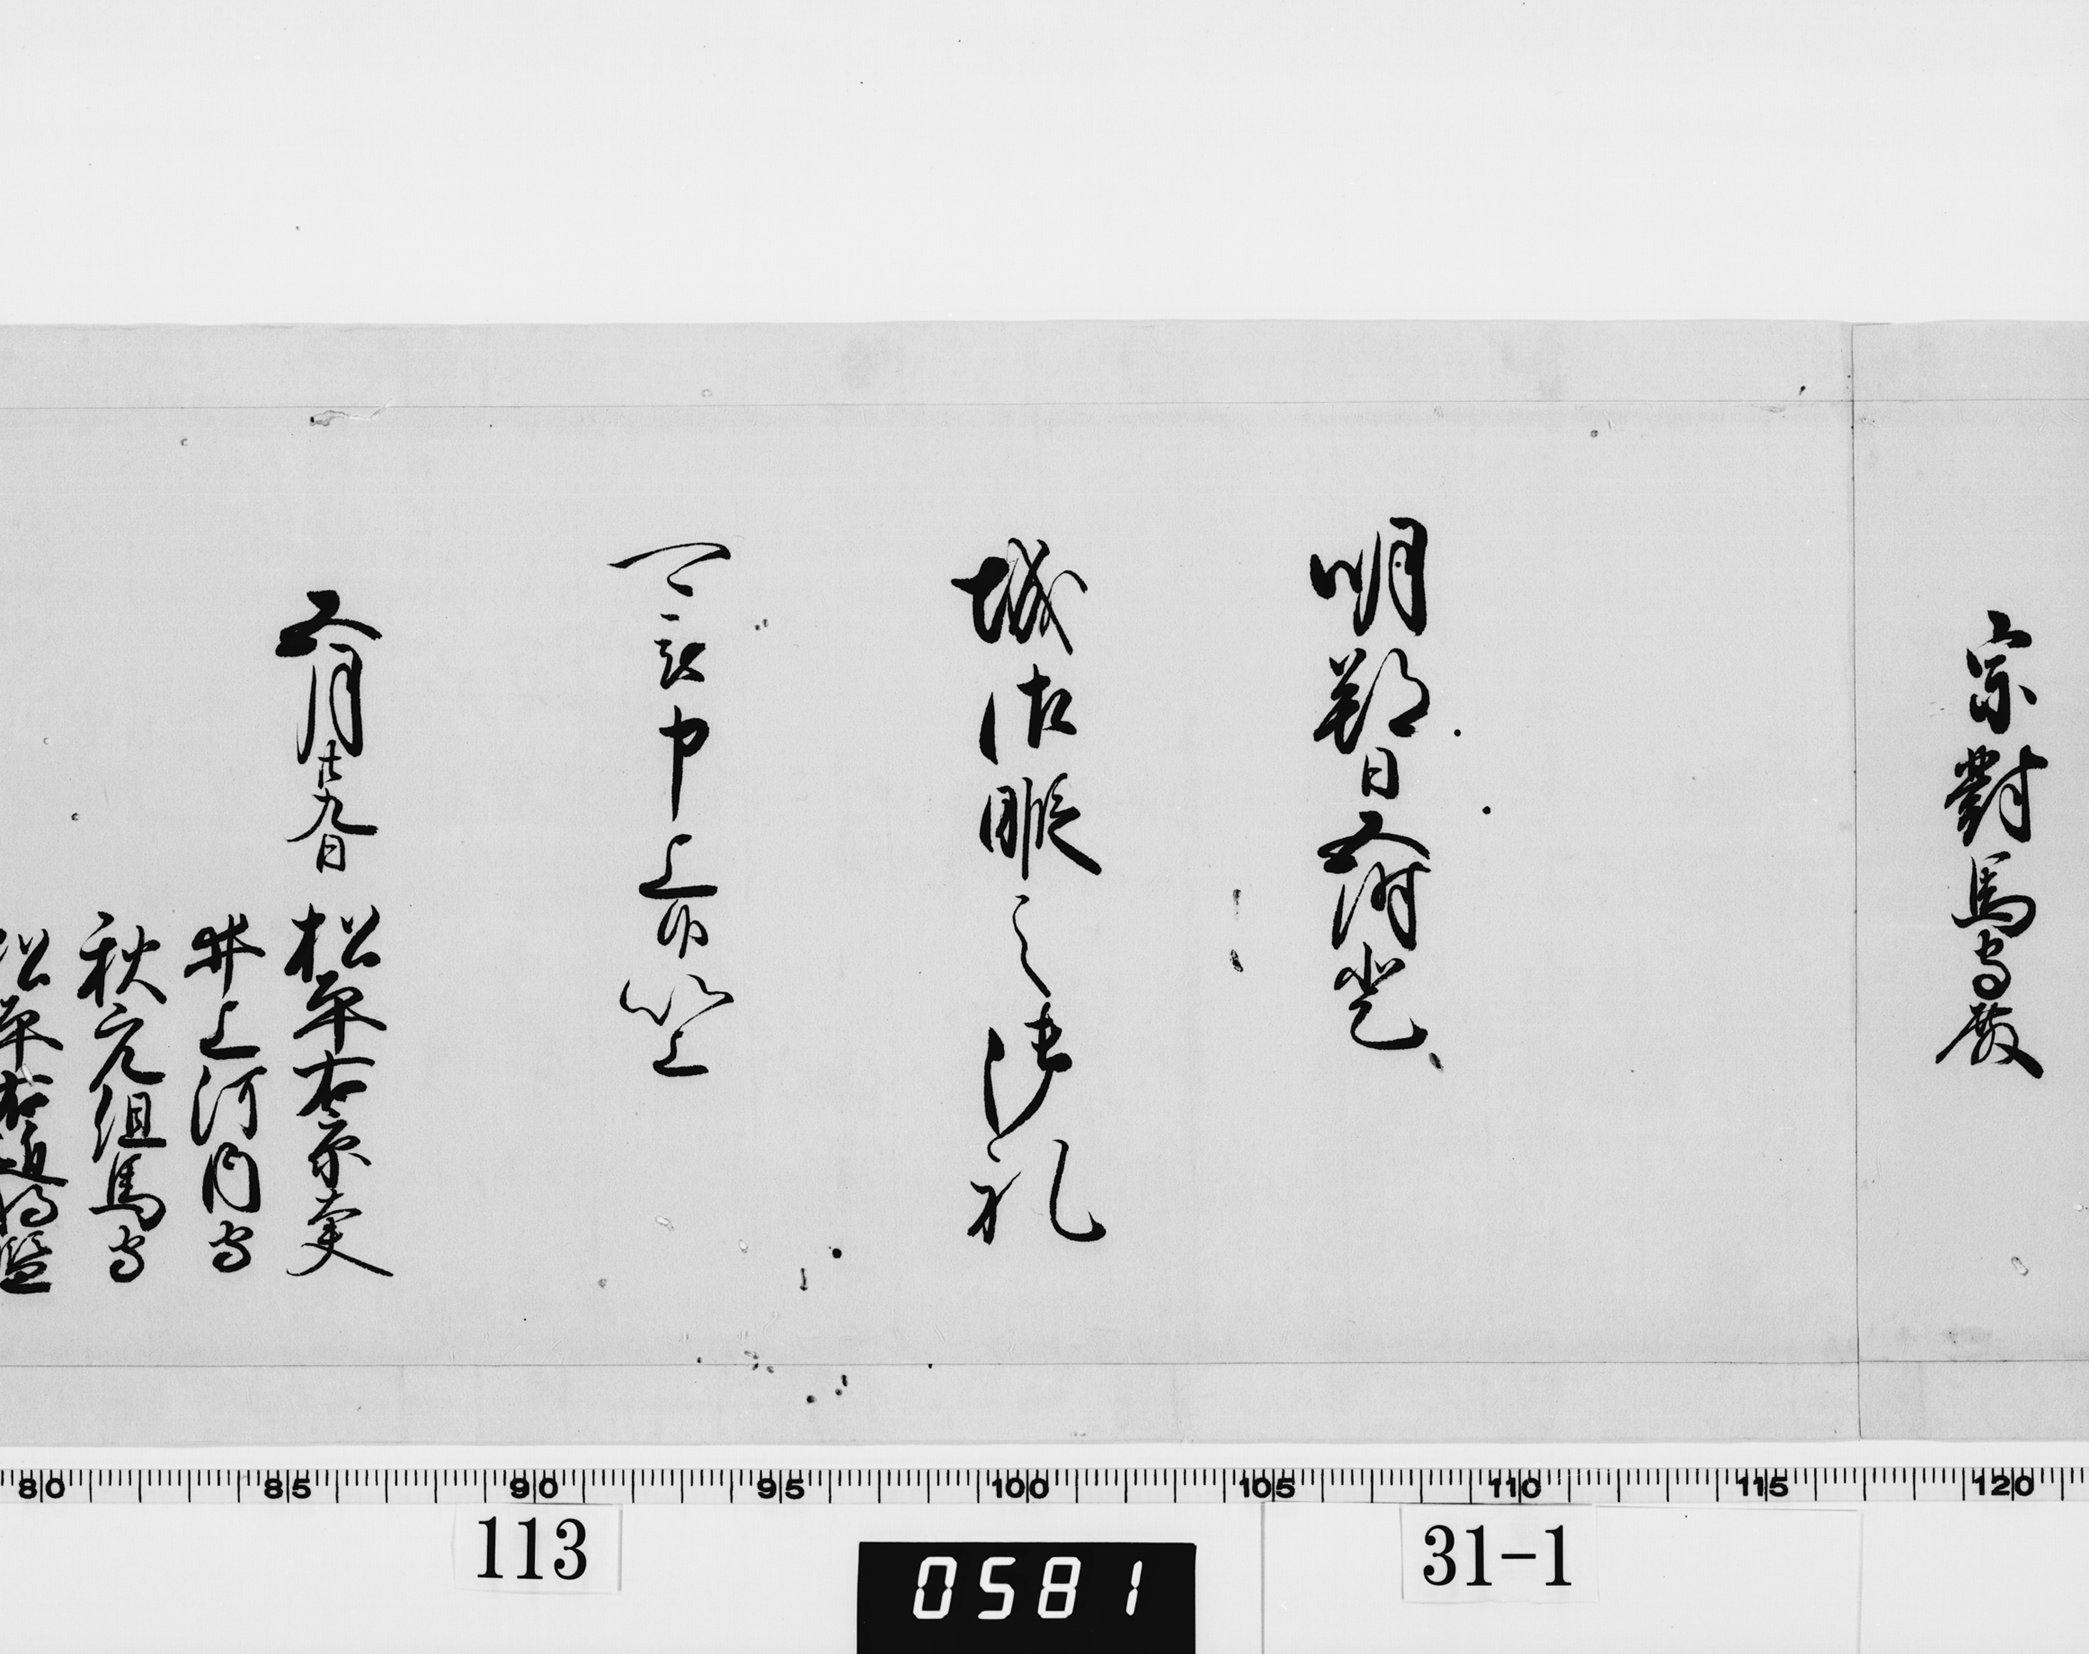 宗對馬守殿
明朔日五時登
城御暇之御礼
可被申上候以上
五月廿九日
松平右京大夫
井上河内守
秋元但馬守
松平右近将監
80 85 90 95 100 105 110 115 120
113
0581
31-1